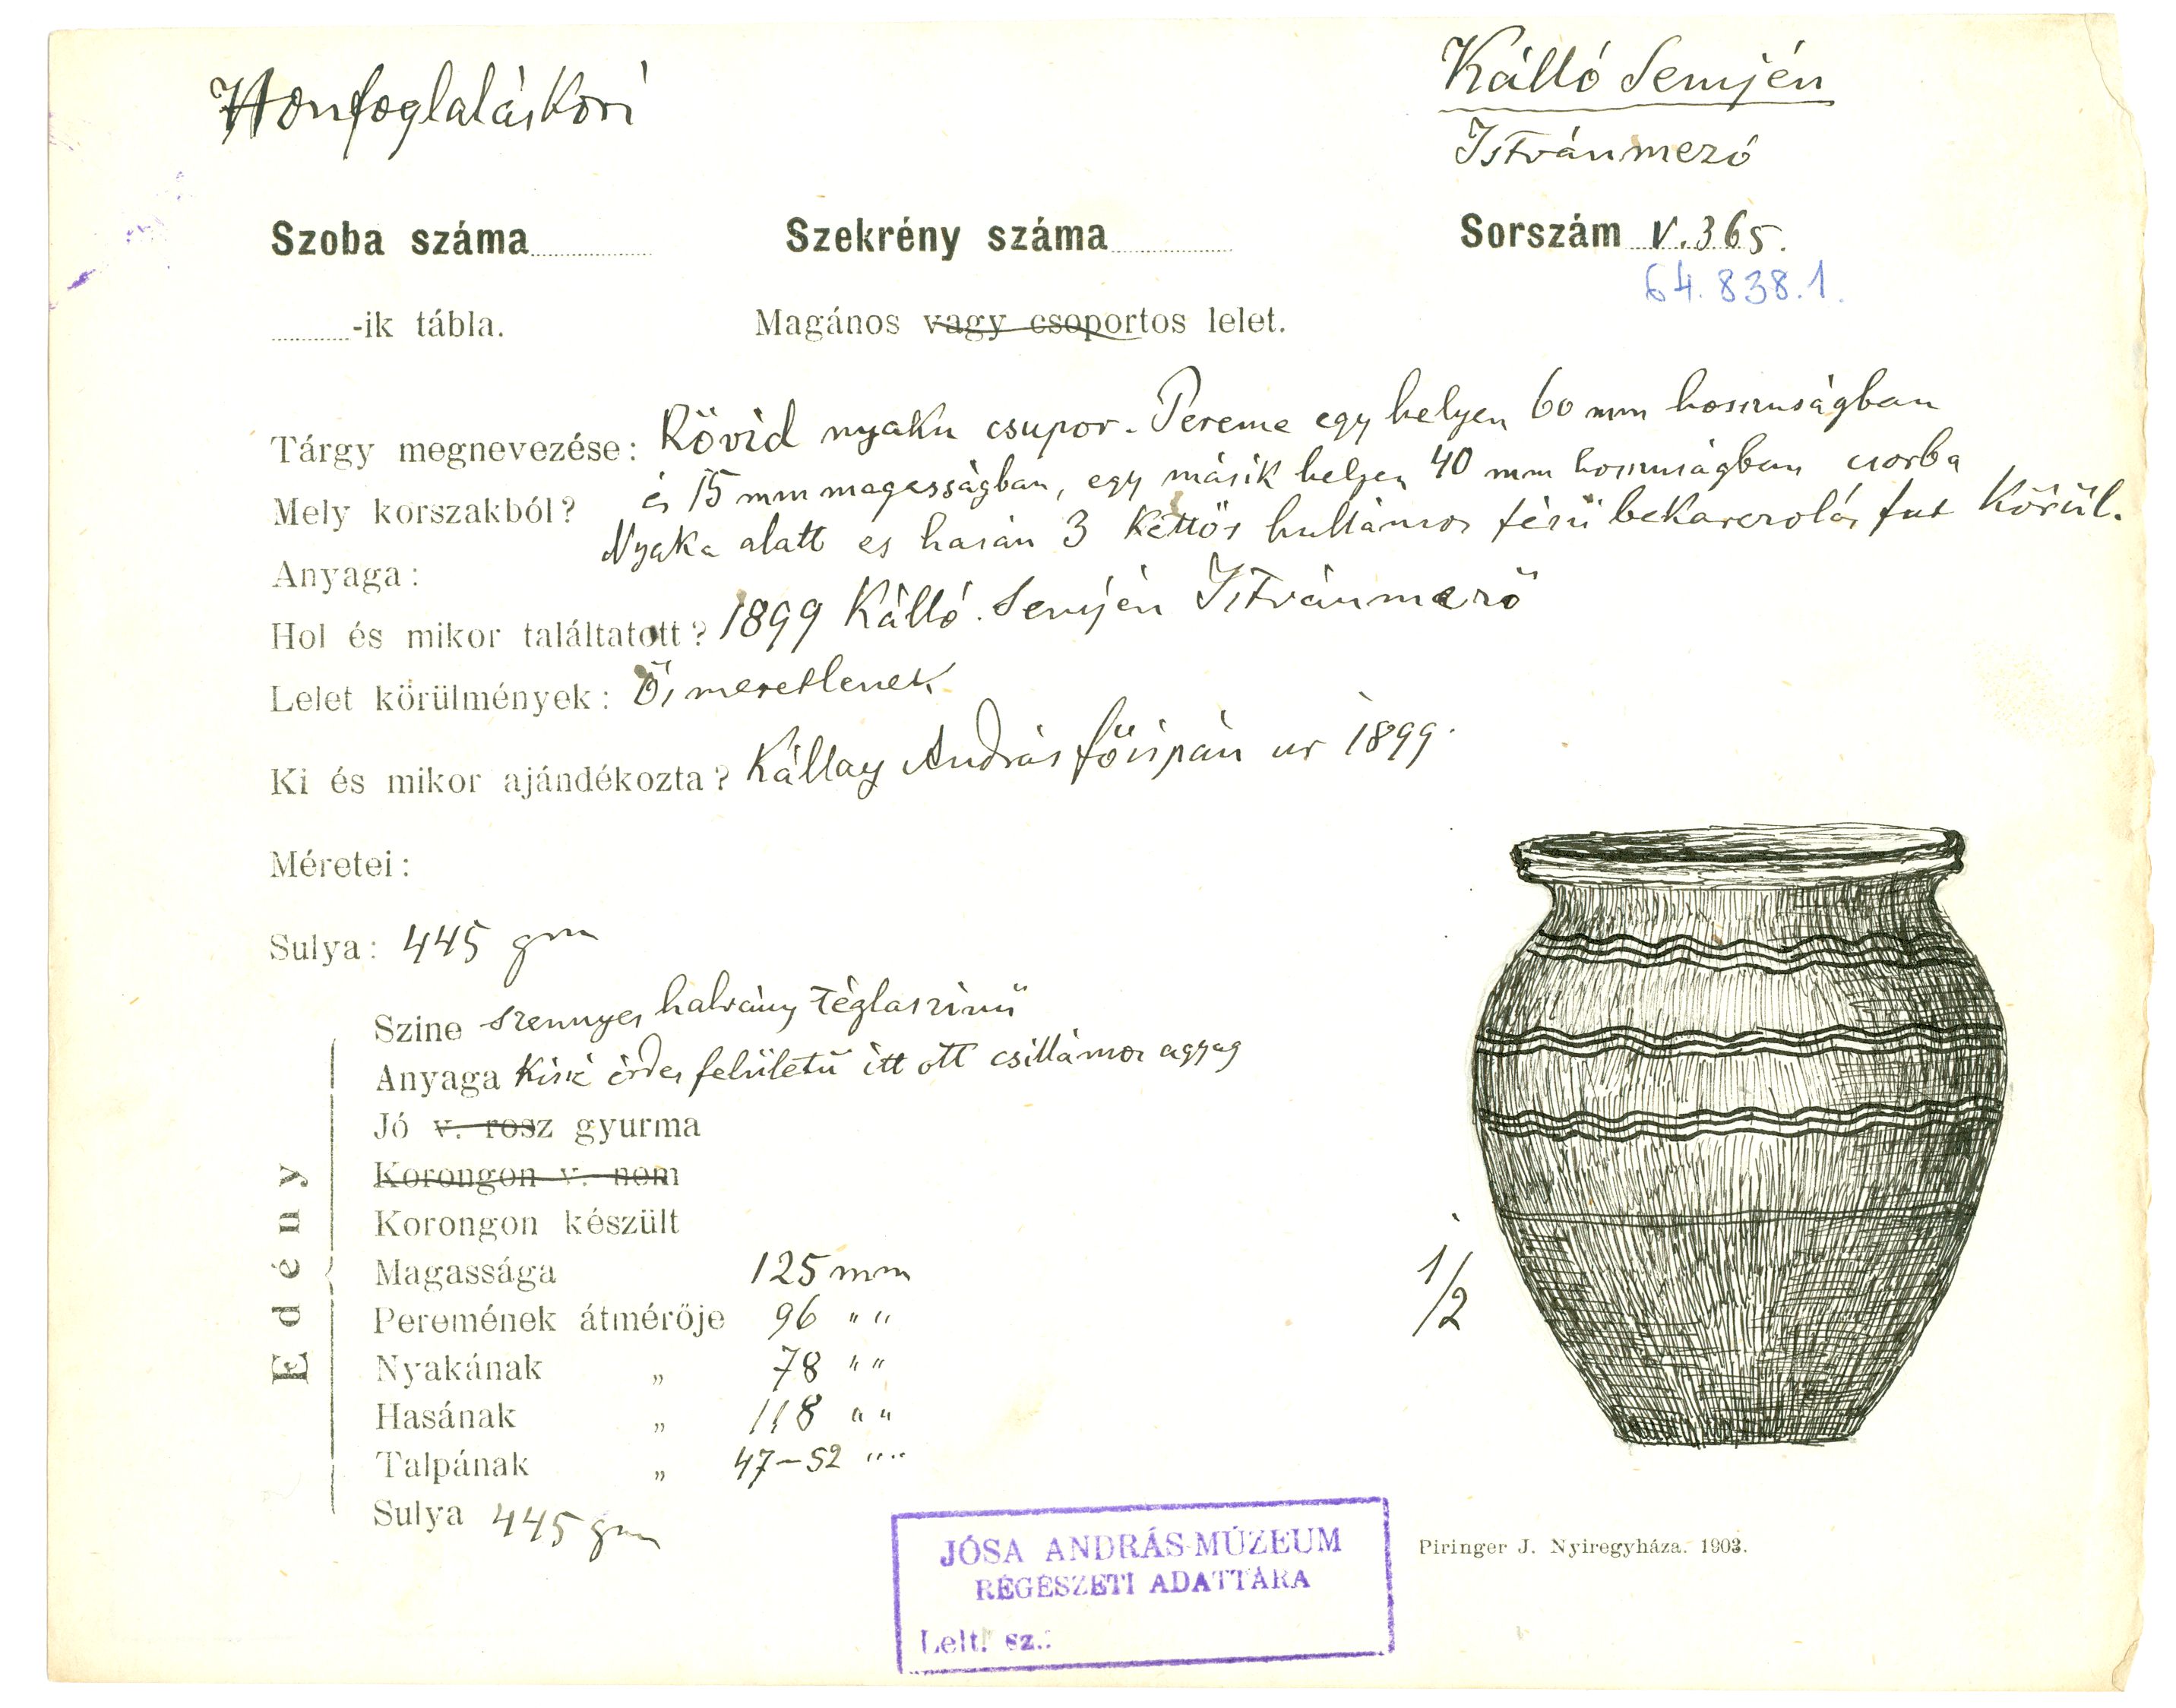 Honfoglaláskori
Kálló Semjén
Istvánmező
Szoba száma
Szekrény száma
Sorszám V. 365.
64.838.1.
-ik tábla.
Magános vagy csoportos lelet.
Tárgy megnevezése: Rövid nyaku csupor. Pereme egy helyen 60 mm hosszuságban
és 15 mm magasságban, egy másik helyen 40 mm hosszuságban csorba
Mely korszakból?
Nyaka alatt es hasán 3 kettős hullámos fésü bekarcolás fut körül.
Anyaga:
Hol és mikor találtatott? 1899 Kálló. Semjén Istvánmező
Lelet körülmények: Ösmeretlenek
Ki és mikor ajándékozta? Kállay András főispán ur 1899.
Méretei:
Sulya: 445 gm
Edény
Szine szennyes halvány téglaszinü
Anyaga Kissé érdes felületü itt ott csillámos agyag
Jó v. rosz gyurma
Korongon v. nem
Korongon készült
Magassága 125 mm
Peremének átmérője 96 " "
Nyakának " 78 " "
Hasának " 118 " "
Talpának " 47-52 " "
Sulya 445 gm
1/2
JÓSA ANDRÁS-MÚZEUM
RÉGÉSZETI ADATTÁRA
Lelt. sz.:
Piringer J. Nyiregyháza. 1903.